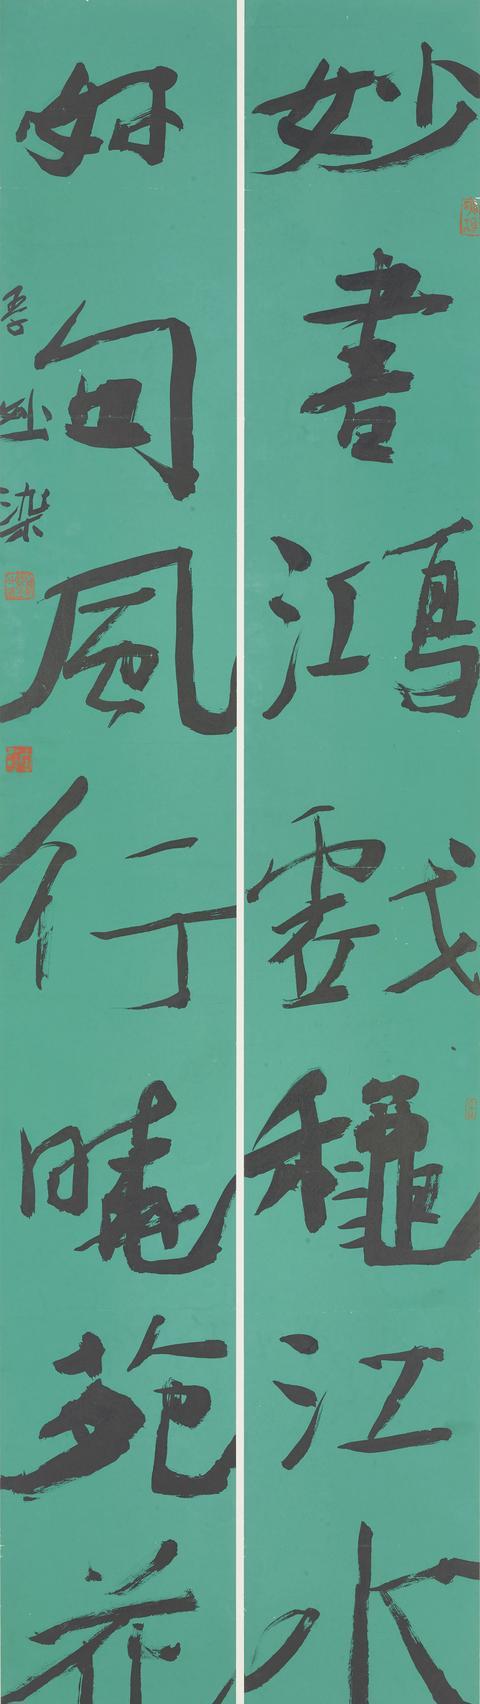 妙書鴻戲龝江水
好句風行曉苑花
吾㚬染